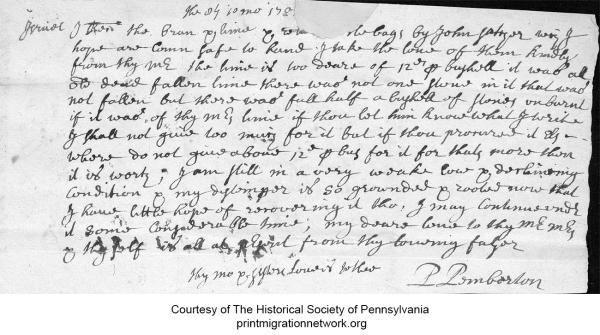 The 8th 10 mo 178
I the Bran & lime & bags by John
hope are Comn safe to hand I take the love of them kindly
from thy Mr the lime is too deare at 12d p bushell it was all
old dead fallen lime there was not one stone in it that was
not fallen but there was full half a bushell of stones unburnt
if it was of thy Mrs lime if thou let him know what I write
I shall not give too much for it but if thou procures it Els=
where do not give above 12d p bus for it for thats more then
it is worth; I am still in a very weake low & declineing
Condition & my distemper is so grounded & rooted now that
I have little hope of recovering it tho I may Continue under
it some Considerable time, my deare love to thy Mr Mrs
& thy self is all at from thy loveing father
thy mo & sisters Love is to thee
P Pemberton
Courtesy of The Historical Society of Pennsylvania
printmigrationnetwork.org